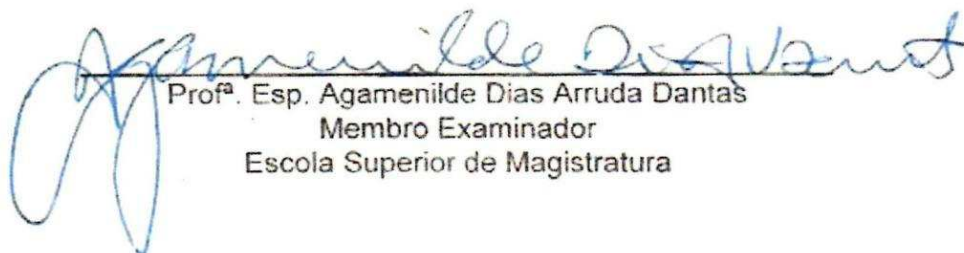 Agamenilde Dias A Dantas
Profª. Esp. Agamenilde Dias Arruda Dantas
Membro Examinador
Escola Superior de Magistratura